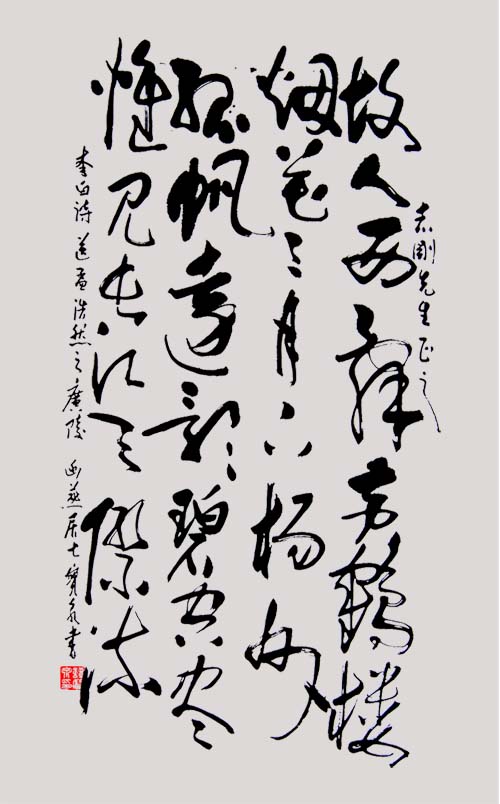 志刚先生正之
故人西辞黄鹤楼
烟花三月下扬州
孤帆远影碧空尽
惟见长江天际流
李白诗 送孟浩然之廣陵 幽燕居士寶泉书